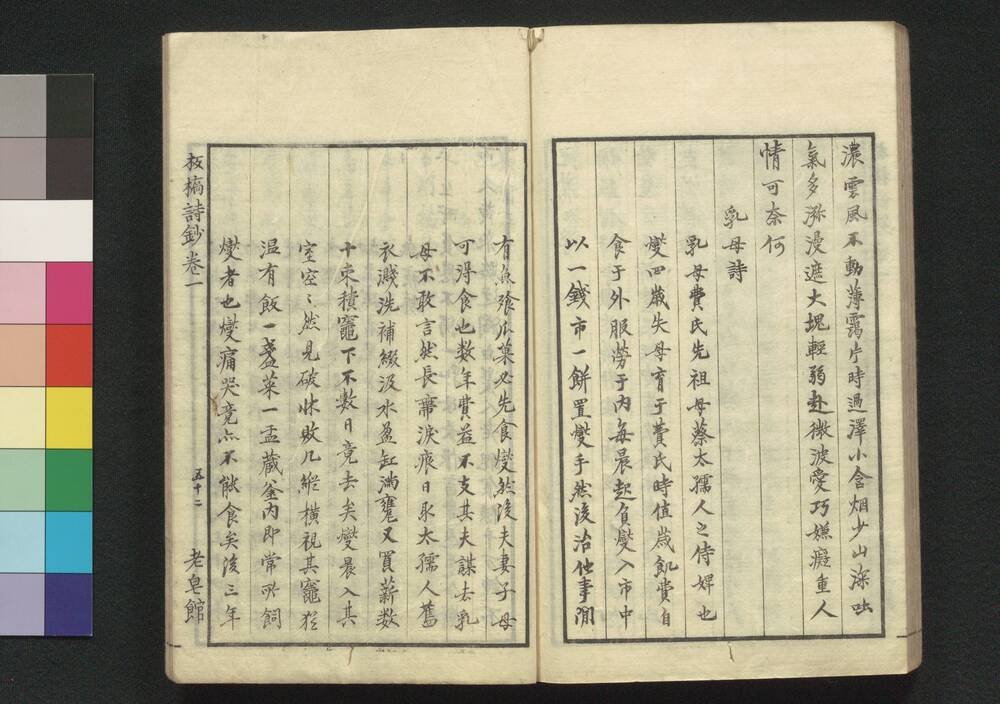 濃雲風不動薄靄片時過澤小含烟少山深吐
氣多瀰漫遮大塊輕弱赴微波愛巧嫌癡重人
情可奈何
乳母詩
乳母費氏先祖母蔡太孺人之侍婢也
燮四歲失母育于費氏時值歲飢費自
食于外服勞于内每晨起負燮入市中
以一錢市一餅置燮手然後治他事間
有魚飱瓜菓必先食燮然後夫妻子母
可淂食也数年費益不支其夫謀去乳
母不敢言然長帶淚痕日取太孺人舊
衣濺洗補綴汲水盈缸満甕又買薪数
十束積竈下不数日竟去矣燮晨入其
室空〻然見破牀敗几縦横視其竈猶
温有飯一盞菜一盂蔵釜内即常所飼
燮者也燮痛哭竟亦不能食矣後三年
板橋詩鈔卷一
五十二
老皂館